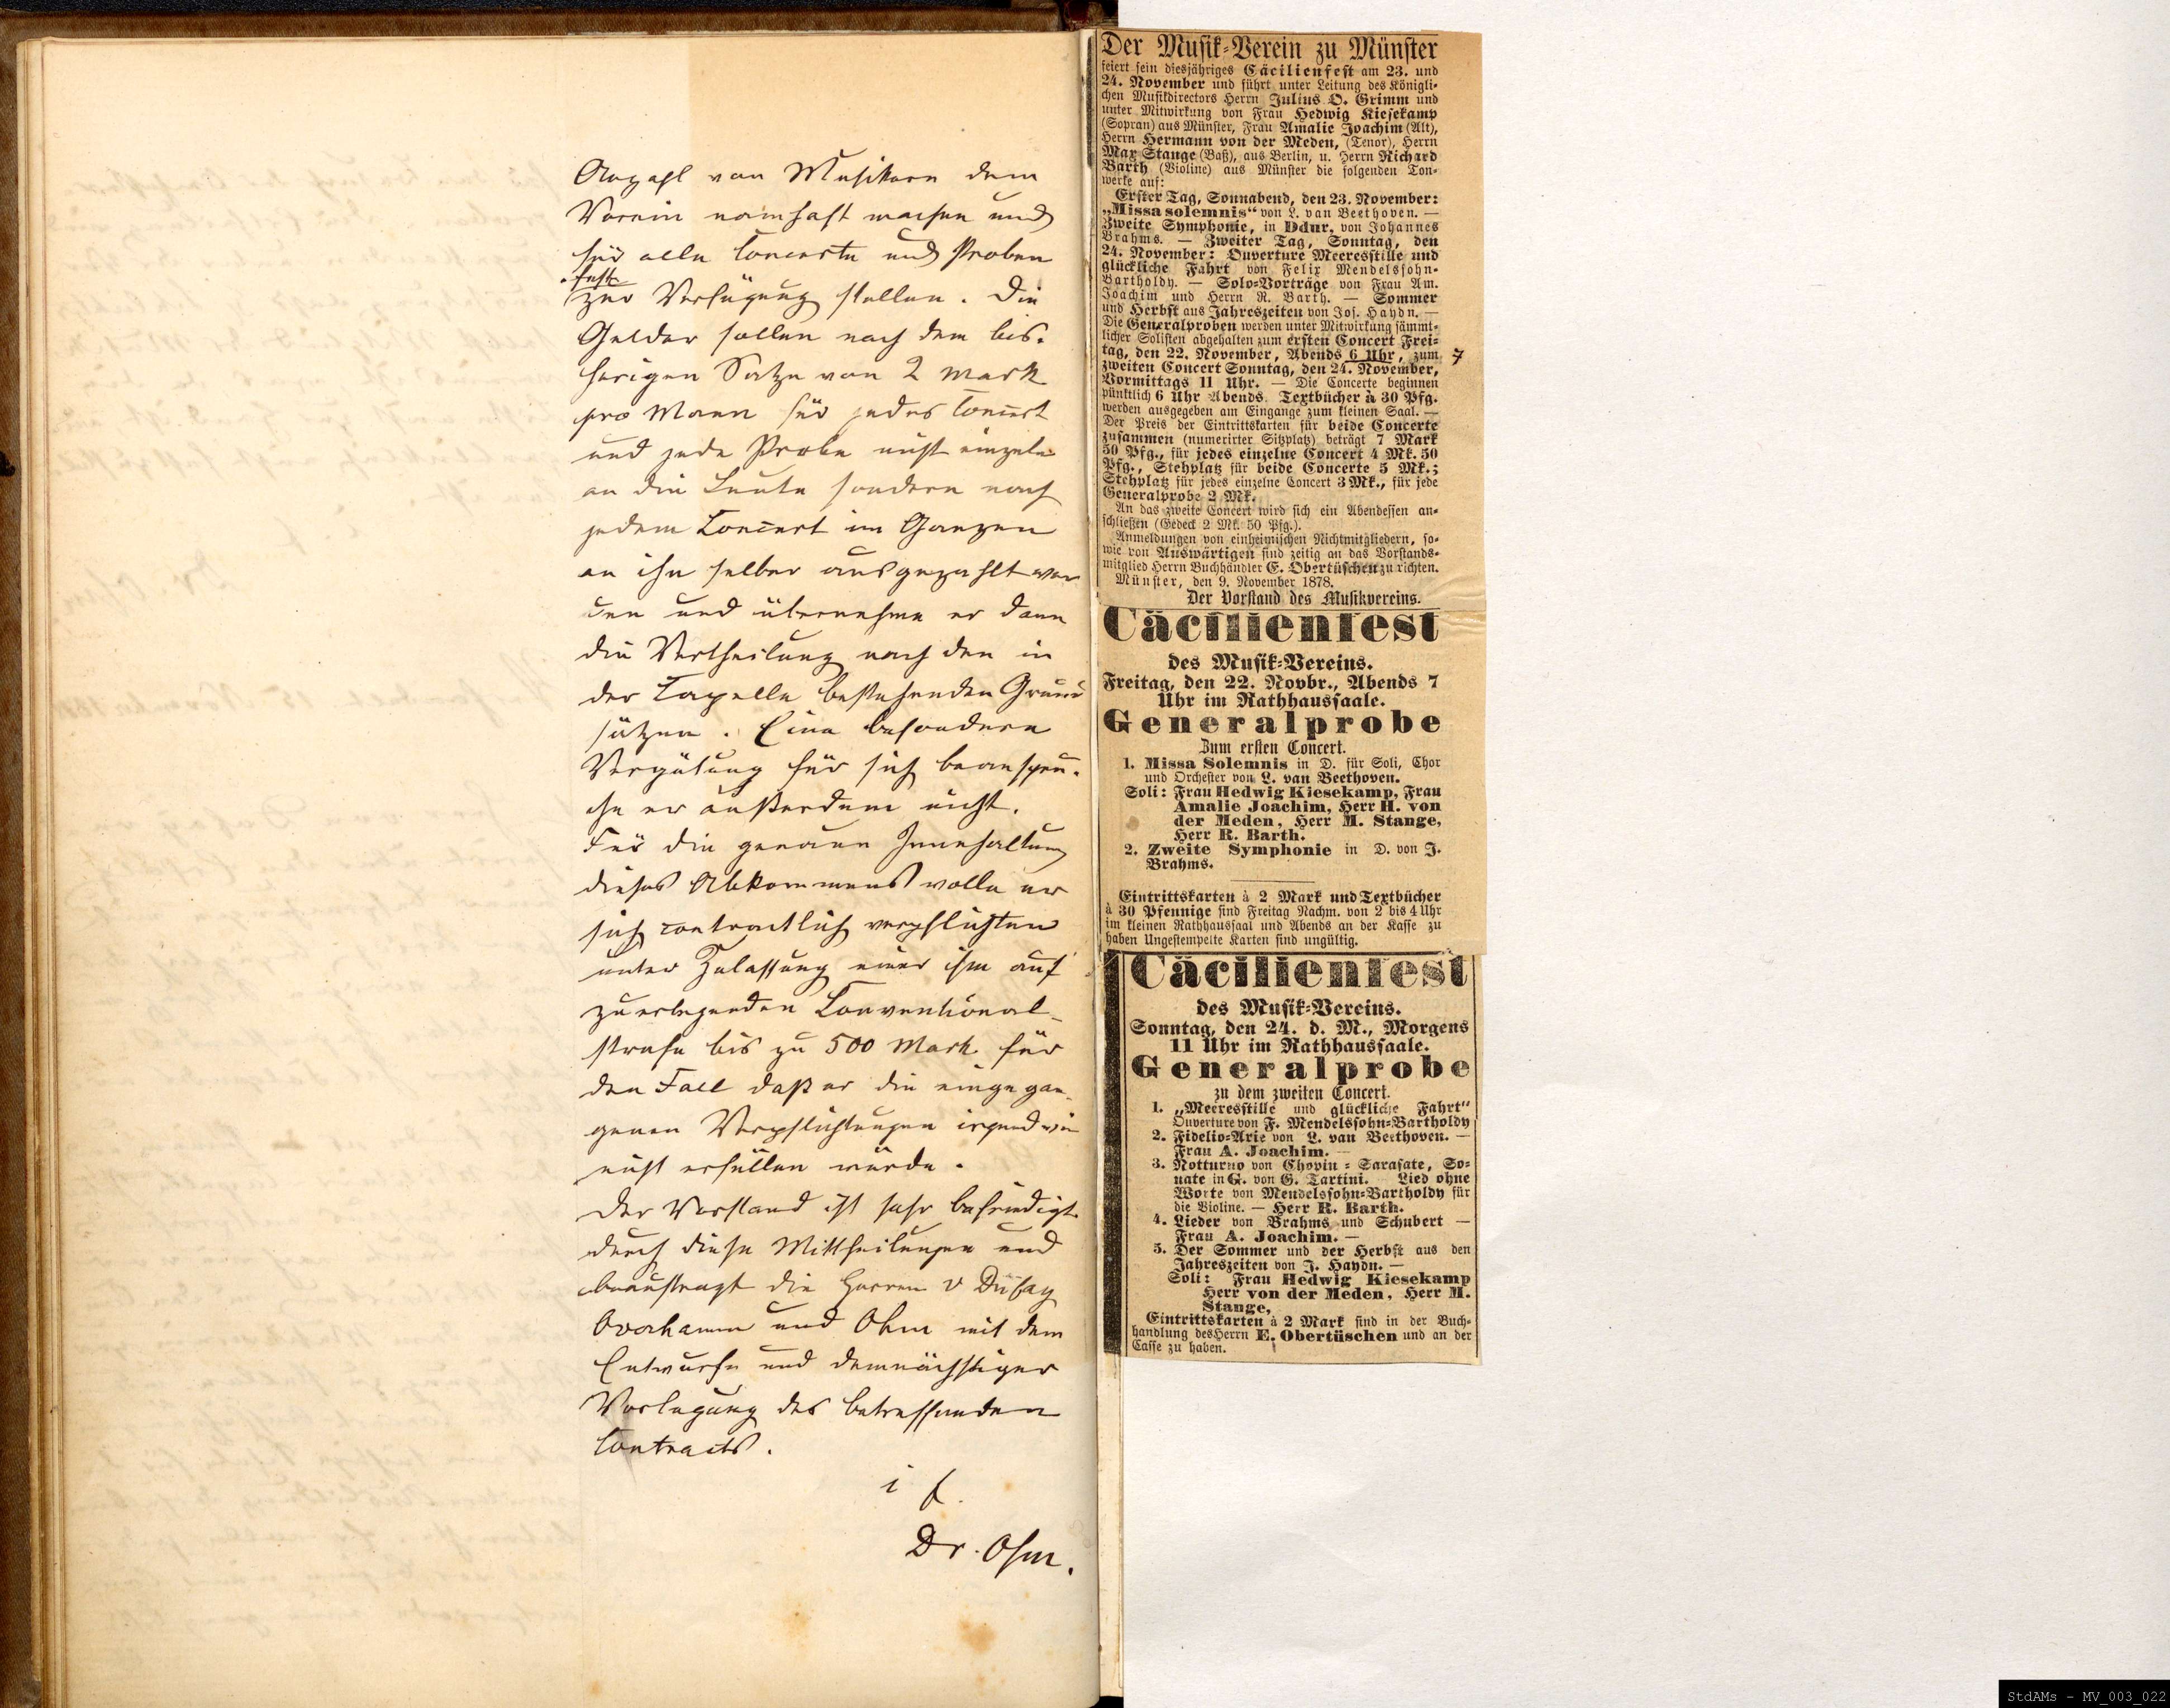 Anzahl von Musikern dem
Verein namhaft machen und
für alle Concerte und Proben
fest
zur Verfügung stellen. Die
Gelder sollen nach dem bis-
herigen Satze von 2 Mark
pro Mann für jedes Concert
und jede Probe nicht einzeln
an die Leute sondern nach
jedem Concert im Ganzen
an ihn selber ausgezahlt wer
den und übernehme er dann
die Vertheilung nach den in
der Capelle bestehenden Grund
sätzen. Eine besondere
Vergütung für sich beanspru-
che er außerdem nicht.
Für die genaue Innehaltung
dieses Abkommens wolle er
sich contractlich verpflichten
unter Zulassung einer ihm auf
zuerlegenden Conventional-
strafe bis zu 500 Mark für
den Fall daß er die eingegan-
genen Verpflichtungen irgendwie
nicht erfüllen würde.
Der Vorstand ist sehr befriedigt
durch diese Mittheilungen und
beauftragt die Herren v Düfay
Overhamm und Ohm mit dem
Entwurfe und demnächstiger
Vorlegung des betreffenden
Contracts.
i f.
Dr. Ohm.
Der Musik-Verein zu Münster
feiert sein diesjähriges Cäcilienfest am 23. und
24. November und führt unter Leitung des Königli-
chen Musikdirectors Herrn Julius O. Grimm und
unter Mitwirkung von Frau Hedwig Kiesekamp
(Sopran) aus Münster, Frau Amalie Joachim (Alt),
Herrn Hermann von der Meden, (Tenor), Herrn
Max Stange (Baß), aus Berlin, u. Herrn Richard
Barth (Violine) aus Münster die folgenden Ton-
werke auf:
Erster Tag, Sonnabend, den 23. November:
„Missa solemnis“ von L. van Beethoven. —
Zweite Symphonie, in Ddur, von Johannes
Brahms. — Zweiter Tag, Sonntag, den
24. November: Ouverture Meeresstille und
glückliche Fahrt von Felix Mendelssohn-
Bartholdy. — Solo-Vorträge von Frau Am.
Joachim und Herrn R. Barth. — Sommer
und Herbst aus Jahreszeiten von Jos. Haydn. —
Die Generalproben werden unter Mitwirkung sämmt-
licher Solisten abgehalten zum ersten Concert Frei-
tag, den 22. November, Abends 6 Uhr, zum 7
zweiten Concert Sonntag, den 24. November,
Vormittags 11 Uhr. — Die Concerte beginnen
pünktlich 6 Uhr Abends. Textbücher à 30 Pfg.
werden ausgegeben am Eingange zum kleinen Saal. —
Der Preis der Eintrittskarten für beide Concerte
zusammen (numerirter Sitzplatz) beträgt 7 Mark
50 Pfg., für jedes einzelne Concert 4 Mk. 50
Pfg., Stehplatz für beide Concerte 5 Mk.;
Stehplatz für jedes einzelne Concert 3 Mk., für jede
Generalprobe 2 Mk.
An das zweite Concert wird sich ein Abendessen an-
schließen (Gedeck 2 Mk. 50 Pfg.).
Anmeldungen von einheimischen Nichtmitgliedern, so-
wie von Auswärtigen sind zeitig an das Vorstands-
mitglied Herrn Buchhändler E. Obertüschen zu richten.
Münster, den 9. November 1878.
Der Vorstand des Musikvereins.
Cäcilienfest
des Musik-Vereins.
Freitag, den 22. Novbr., Abends 7
Uhr im Rathhaussaale.
Generalprobe
Zum ersten Concert.
1. Missa Solemnis in D. für Soli, Chor
und Orchester von L. van Beethoven.
Soli: Frau Hedwig Kiesekamp, Frau
Amalie Joachim, Herr H. von
der Meden, Herr M. Stange,
Herr R. Barth.
2. Zweite Symphonie in D. von J.
Brahms.
Eintrittskarten à 2 Mark und Textbücher
à 30 Pfennige sind Freitag Nachm. von 2 bis 4 Uhr
im kleinen Rathhaussaal und Abends an der Kasse zu
haben Ungestempelte Karten sind ungültig.
Cäcilienfest
des Musik-Vereins.
Sonntag, den 24. d. M., Morgens
11 Uhr im Rathhaussaale.
Generalprobe
zu dem zweiten Concert.
1. „Meeresstille und glückliche Fahrt“
Ouverture von F. Mendelssohn-Bartholdy
2. Fidelio-Arie von L. van Beethoven. —
Frau A. Joachim. —
3. Notturno von Chopin - Sarasate, So-
nate in G. von G. Tartini. Lied ohne
Worte von Mendelssohn-Bartholdy für
die Violine. — Herr R. Barth.
4. Lieder von Brahms und Schubert —
Frau A. Joachim. —
5. Der Sommer und der Herbst aus den
Jahreszeiten von J. Haydn. —
Soli: Frau Hedwig Kiesekamp
Herr von der Meden, Herr M.
Stange,
Eintrittskarten à 2 Mark sind in der Buch-
handlung des Herrn E. Obertüschen und an der
Casse zu haben.
StdAMs - MV_003_022